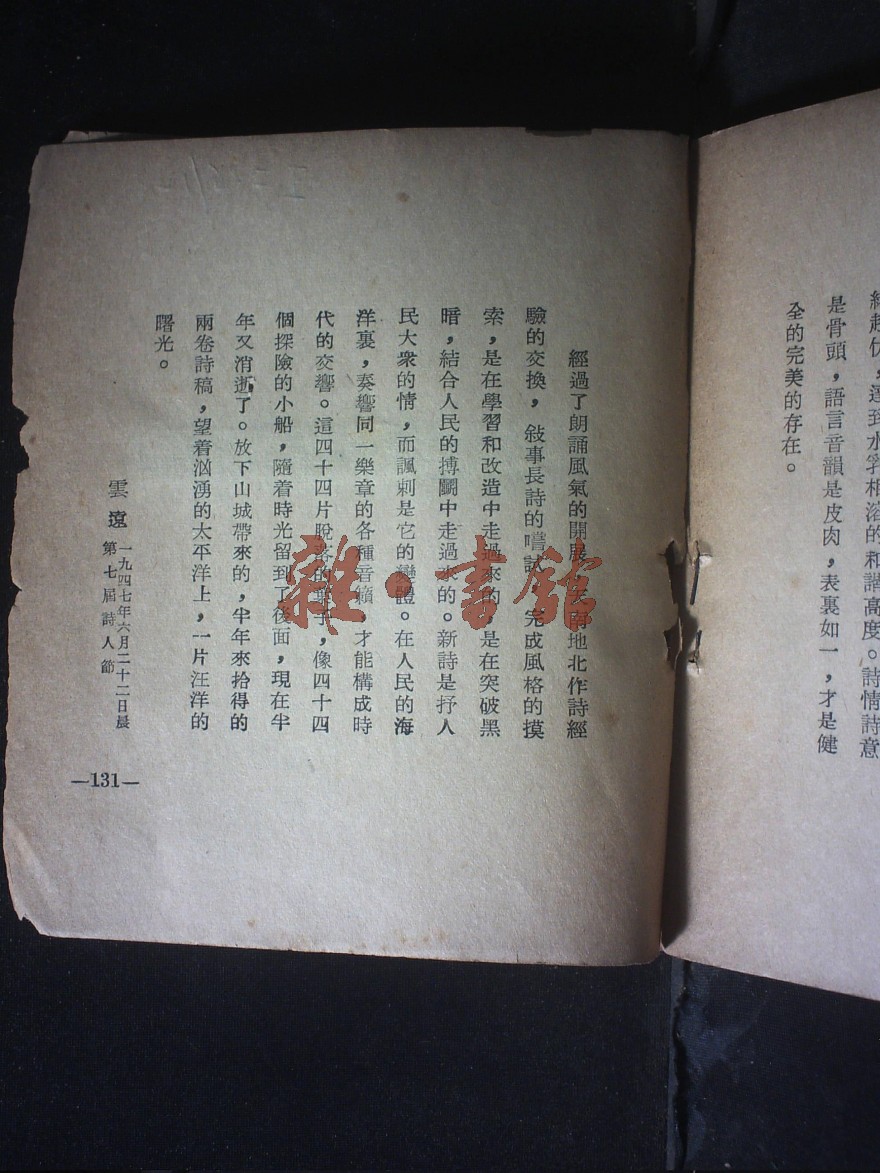 是骨頭，語言音韻是皮肉，表裏如一，才是健
全的完美的存在。
經過了朗誦風氣的開展，天南地北作詩經
驗的交換，敍事長詩的嚐試，完成風格的摸
索，是在學習和改造中走過來的，是在突破黑
暗，結合人民的搏鬭中走過來的。新詩是抒人
民大衆的情，而諷刺是它的變體。在人民的海
洋裏，奏響同一樂章的各種音籟，才能構成時
代的交響。這四十四片脫落的葉子，像四十四
個探險的小船，隨着時光留到了後面，現在半
年又消逝了。放下山城帶來的，半年來拾得的
兩卷詩稿，望着汹湧的太平洋上，一片汪洋的
曙光。
雲遠 一九四七年六月二十二日晨
第七屆詩人節
—131—
雜·書館